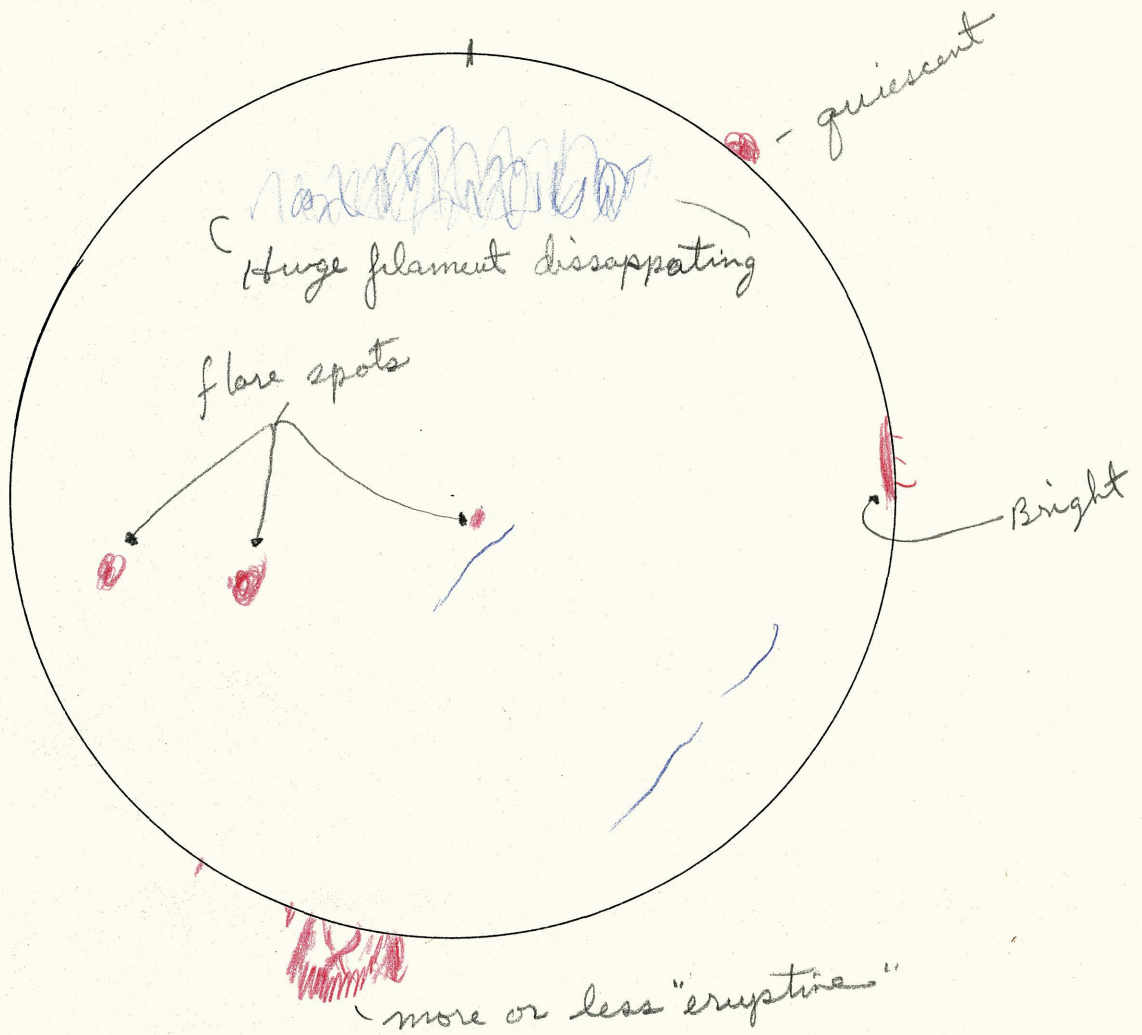 quiescent
Huge filament dissappating
flare spots
Bright
more or less "eruptine"